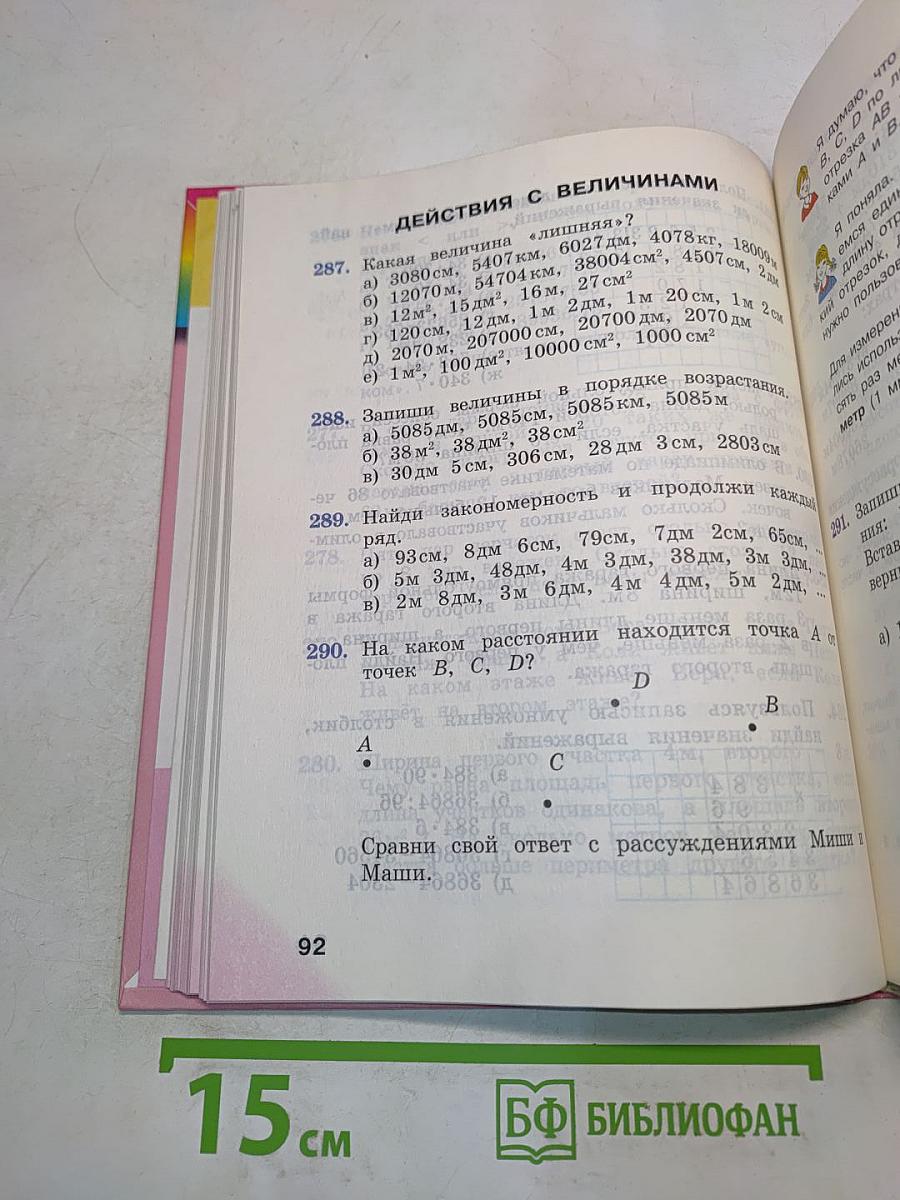 ДЕЙСТВИЯ С ВЕЛИЧИНАМИ
287. Какая величина «лишняя»?
а) 3080 см, 5407 км, 6027 дм, 4078 кг, 18009 м
б) 12070 м, 54704 км, 38004 см², 4507 см, 2 дм
в) 12 м², 15 дм², 16 м, 27 см²
г) 120 см, 12 дм, 1 м 2 дм, 1 м 20 см, 1 м 2 см
д) 2070 м, 207000 см, 20700 дм, 2070 дм
е) 1 м², 100 дм², 10000 см², 1000 см²
288. Запиши величины в порядке возрастания.
а) 5085 дм, 5085 см, 5085 км, 5085 м
б) 38 м², 38 дм², 38 см²
в) 30 дм 5 см, 306 см, 28 дм 3 см, 2803 см
289. Найди закономерность и продолжи каждый
ряд.
а) 93 см, 8дм 6см, 79см, 7дм 2см, 65см, ...
б) 5м 3дм, 48дм, 4м 3дм, 38дм, 3м 3дм, ...
в) 2м 8дм, 3м 6дм, 4м 4дм, 5м 2дм, ...
290. На каком расстоянии находится точка A от
точек B, C, D?
D
B
A
C
Сравни свой ответ с рассуждениями Миши и
Маши.
92
Я думаю, что
B, C, D по
отрезка AB
ками A и B.
Я поняла.
емся
длину
кий отрезок,
нужно
Для
лись
сять раз
метр (1
291. Запиши
ния:
Встав
верны
а)
15 см
БФ БИБЛИОФАН